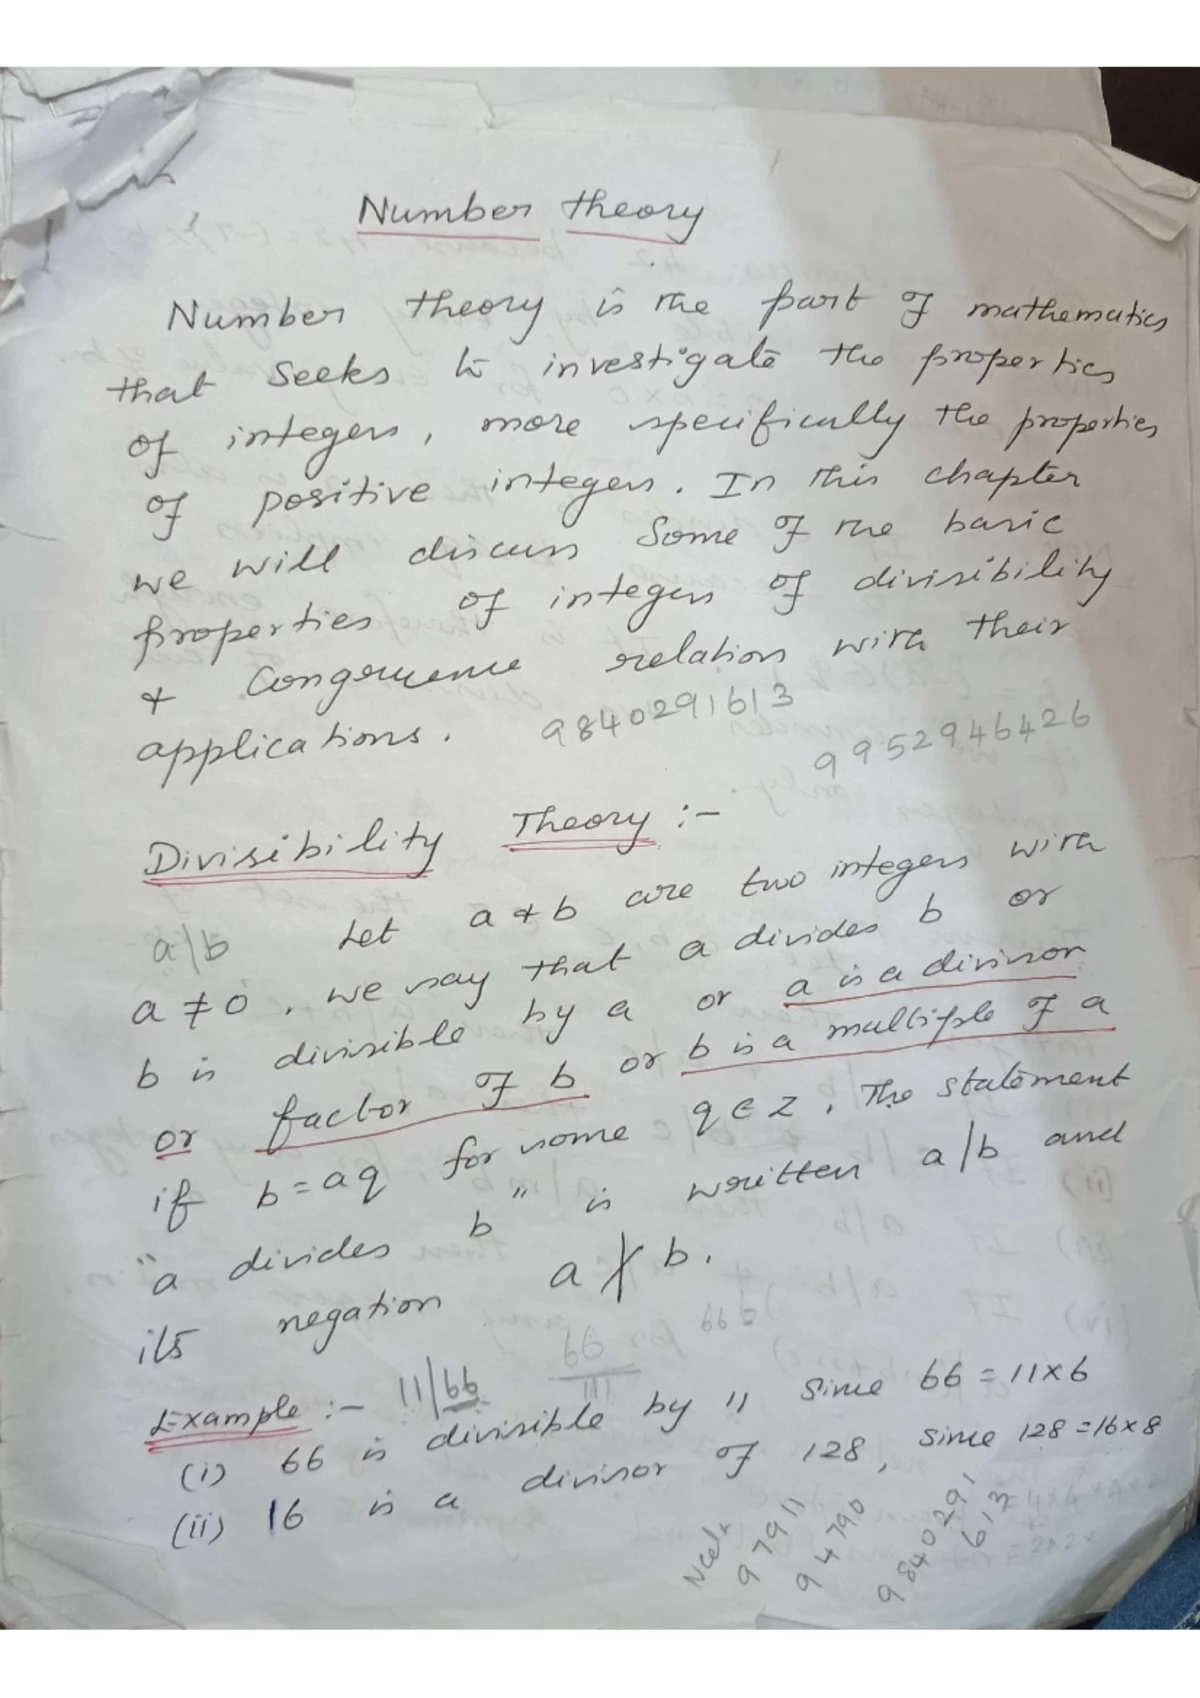 Number theory
Number theory is the part of mathematics
that seeks to investigate the properties
of integers, more specifically the properties
of positive integers. In this chapter
we will discuss some of the basic
properties of integers of divisibility
& Congruence relation with their
applications.
9840291613
9952946426
Divisibility Theory :-
a|b Let a & b are two integers with
a ≠ 0. we say that a divides b or
b is divisible by a or a is a divisor
or factor of b or b is a multiple of a
if b = aq for some q ∈ Z. The statement
"a divides b" is written a/b and
its negation a ∤ b.
Example :- 11/66
(i) 66 is divisible by 11 since 66 = 11×6
(ii) 16 is a divisor of 128, since 128 = 16×8
97911
94790
9840291
613